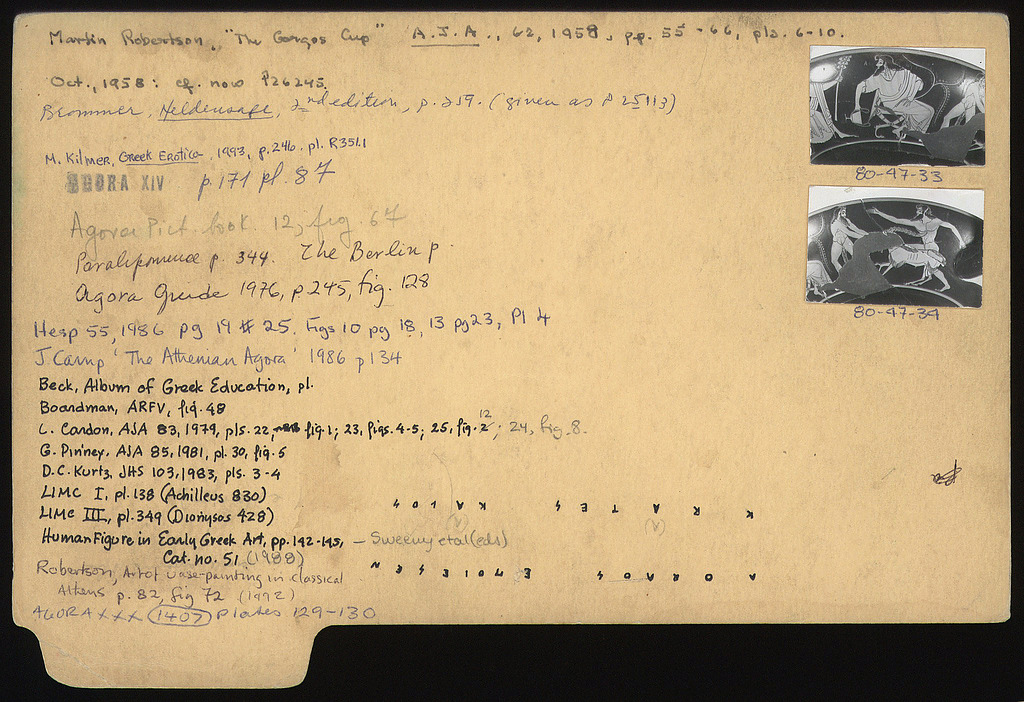 Martin Robertson, "The Gorgos Cup" A.J.A., 62, 1958, pp. 55-66, pls. 6-10.
Oct., 1958: cf. now P26245.
Brommer, Heldensage, 2nd edition, p. 259. (given as P 25113)
M. Kilmer, Greek Erotica, 1993, p. 246. pl. R351.1
AGORA XIV p. 171 pl. 87
Agora Pict. book. 12, fig. 67
Paralipomena p. 344. The Berlin P.
Agora Guide 1976, p. 245, fig. 128
Hesp 55, 1986 pg 19 # 25. Figs 10 pg 18, 13 pg 23, Pl 4
J Camp 'The Athenian Agora' 1986 p 134
Beck, Album of Greek Education, pl.
Boardman, ARFV, fig. 48
C. Cardon, AJA 83, 1979, pls. 22, fig. 1; 23, figs. 4-5; 25, fig. 12; 24, fig. 8.
G. Pinney, AJA 85, 1981, pl. 30, fig. 5
D.C. Kurtz, JHS 103, 1983, pls. 3-4
LIMC I, pl. 138 (Achilleus 830)
LIMC III, pl. 349 (Dionysos 428)
Human Figure in Early Greek Art, pp. 142-145, – Sweeny et al (eds)
Cat. no. 51 (1988)
Robertson, Art of vase-painting in classical
Athens p. 82, fig 72 (1992)
AGORA XXX 1407 Plates 129-130
80-47-33
80-47-34